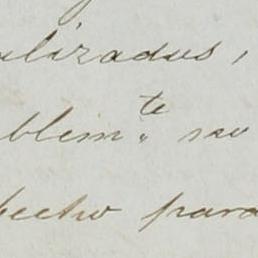 alizados,
blem.te no
pecto para